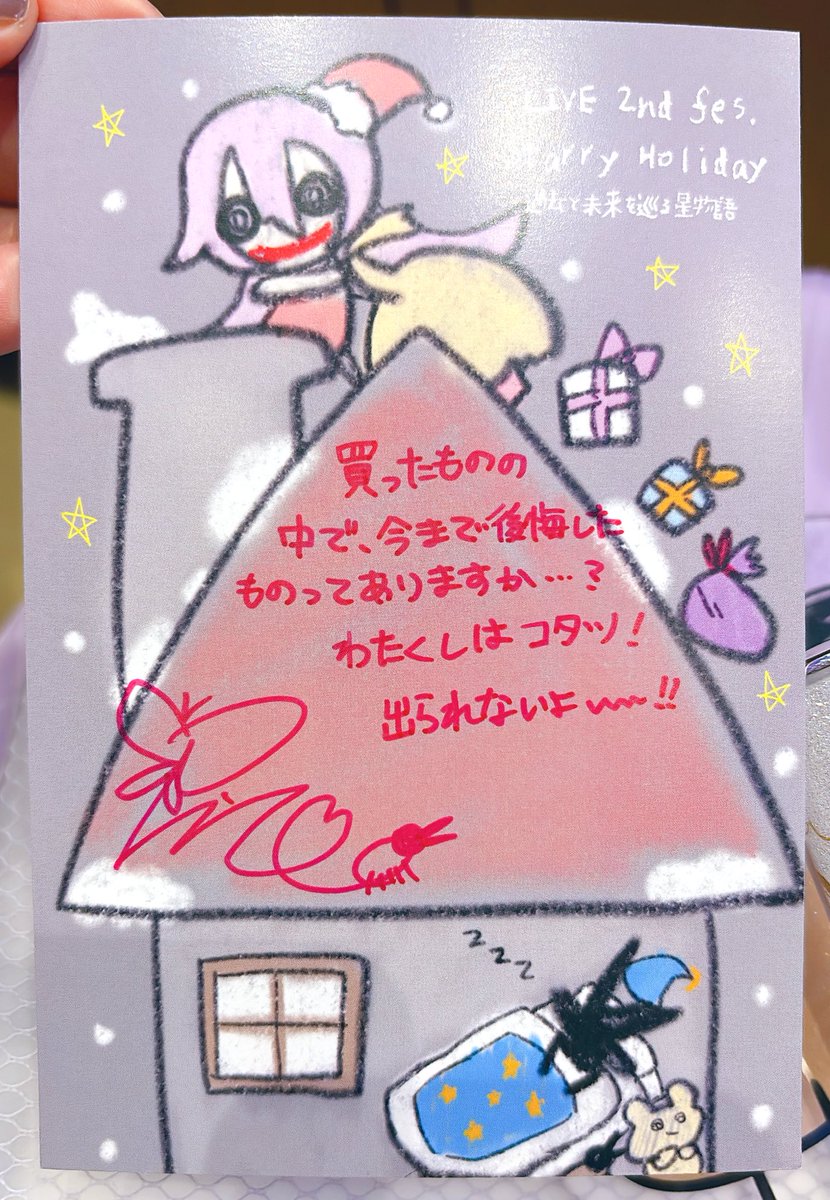 LIVE 2nd fes.
Starry Holiday
過去と未来を巡る星物語
買ったものの
中で、今まで後悔した
ものってありますか…?
わたくしはコタツ!
出られないよ〜〜!!
z z z